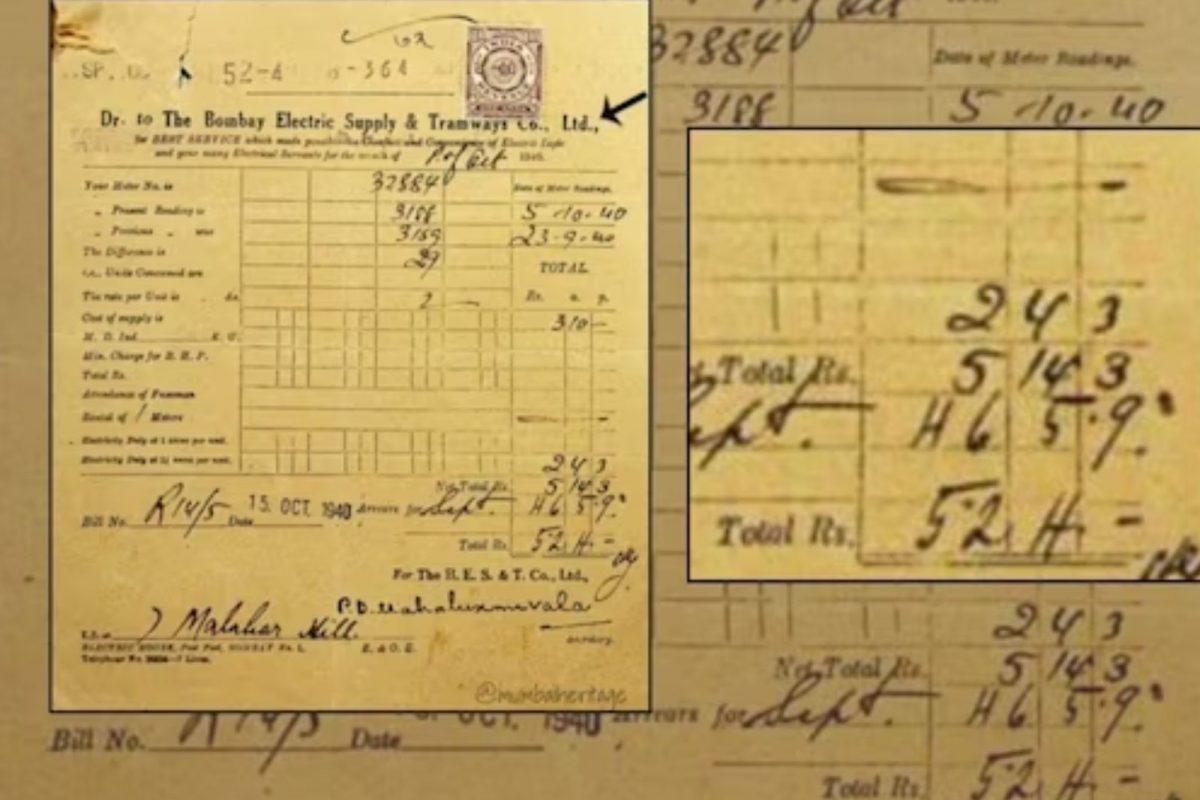 52-4
364
INDIA
Dr. to The Bombay Electric Supply & Tramways Co., Ltd.,
for BEST SERVICE which made possible the Comfort and Convenience of Electric Light
and your many Electrical Servants for the month of 1940.
Your Meter No. is 32884 Date of Meter Readings.
„ Present Reading is 3188 5-10-40
„ Previous „ was 3159 23-9-40
The Difference is 29
i.e., Units Consumed are TOTAL
The rate per Unit is As. 2 — Rs. a. p.
Cost of supply is 3 10 —
M. D. Ind. K. W.
Min. Charge for B. H. P.
Total Rs.
Attendance of Fuseman
Rental of 1 Meters — -
Electricity Duty at
Electricity Duty at
2 4 3
Net Total Rs. 5 14 3
Arrears for Sept. 46 5.9
Bill No. R14/5 Date 15. OCT. 1940
Total Rs. 52 4 -
For The B. E. S. & T. Co., Ltd.,
P.D. Mahaluxmivala
Malabar Hill.
E. & O. E.
ELECTRIC HOUSE, BOMBAY No. 1.
Telephone No. Lines.
@mumbaiheritage
32884
Date of Meter Readings.
3188 5-10-40
2 4 3
Total Rs. 5 14 3
ept. 46 5.9
Total Rs. 52 4 -
2 4 3
Net Total Rs. 5 14 3
Arrears for Sept. 46 5.9
OCT. 1940
Bill No. R14/5 Date
Total Rs. 52 4 -